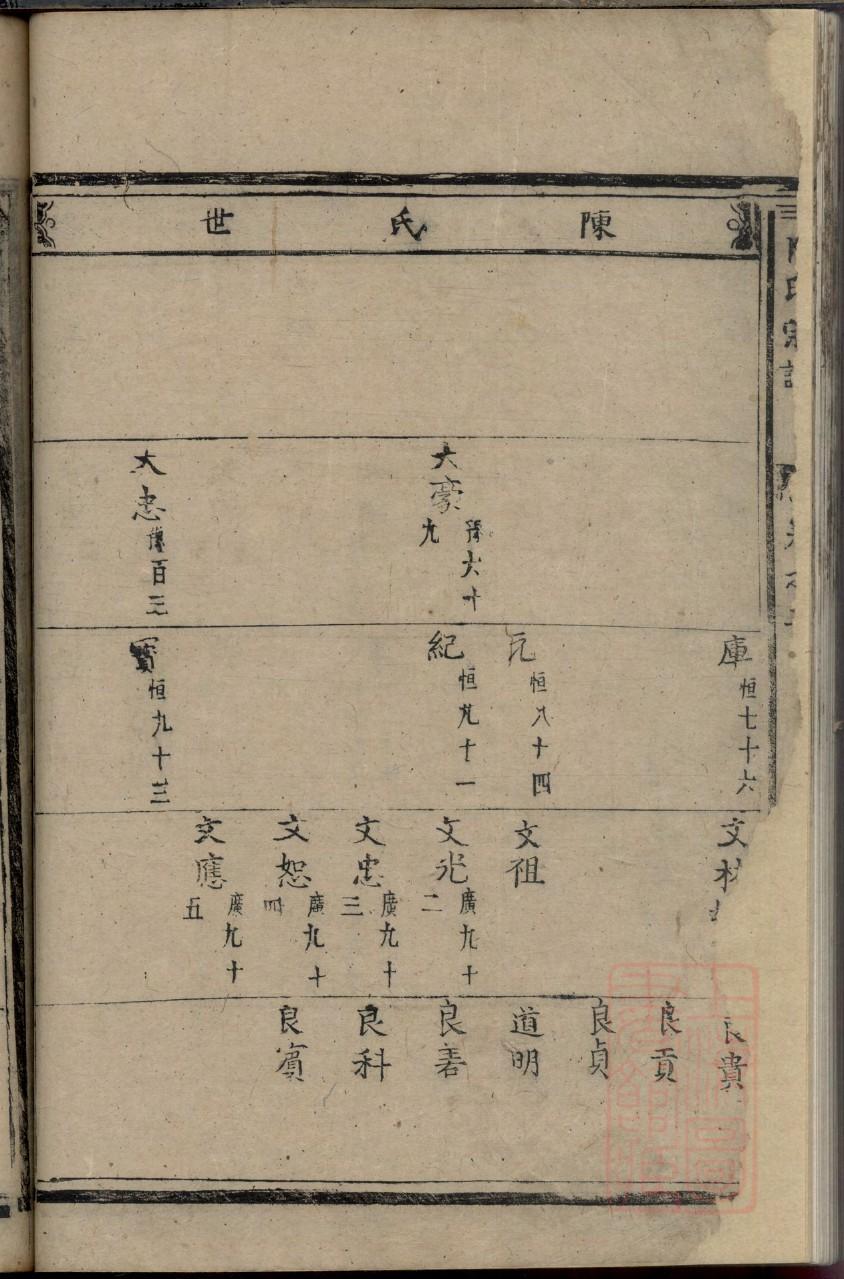 陳氏世
氏宗譜
大豪 豫六十九
大忠 豫百三
庫 恒七十六
元 恒八十四
紀 恒九十一
寳 恒九十三
文材
文祖
文光 廣九十二
文忠 廣九十三
文恕 廣九十四
文應 廣九十五
良貴
良貢
良貞
道明
良善
良科
良賓